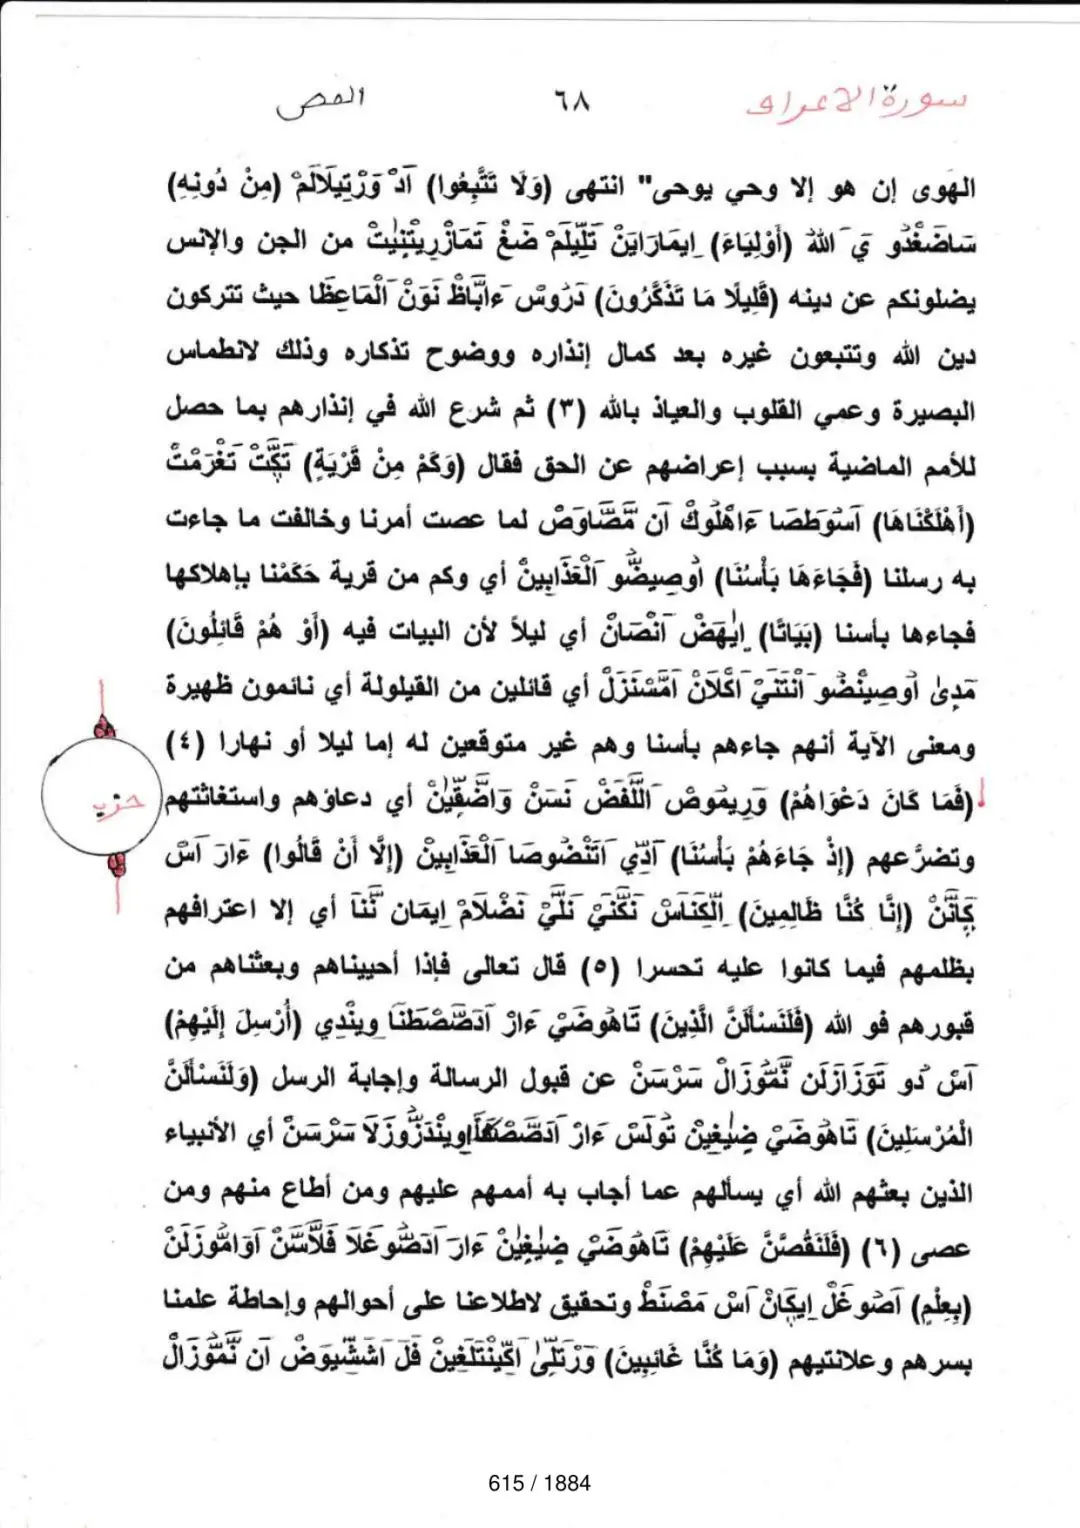 سورة الاعراف ٦٨ المص
الهوى إن هو إلا وحي يوحى" انتهى (وَلَا تَتَّبِعُوا) اَدْ وَرْتِيلَالَمْ (مِنْ دُونِهِ)
سَاضَغْدُو يَ اللهْ (أَوْلِيَاءَ) اِيمَارَايَنْ تَلِّيلَمْ ضَغْ تَمَازْرِيتْنِيْتْ من الجن والإنس
يضلونكم عن دينه (قَلِيلًا مَا تَذَكَّرُونَ) دَرُوسْ ءَابَّاظْ نَوَنْ اَلْمَاعِظَا حيث تتركون
دين الله وتتبعون غيره بعد كمال إنذاره ووضوح تذكاره وذلك لانطماس
البصيرة وعمي القلوب والعياذ بالله (٣) ثم شرع الله في إنذارهم بما حصل
للأمم الماضية بسبب إعراضهم عن الحق فقال (وَكَمْ مِنْ قَرْيَةٍ) تَكَّتْ تَغْرَمْتْ
(أَهْلَكْنَاهَا) اَسْوَطَصَا ءَاهْلُوكْ اَن مَّصَّاوَصْ لما عصت أمرنا وخالفت ما جاءت
به رسلنا (فَجَاءَهَا بَأْسُنَا) اُوصِيضُّو اَلْعَذَابِينْ أي وكم من قرية حَكَمْنا بإهلاكها
فجاءها بأسنا (بَيَاتًا) اِيهَضْ اَنْصَانْ أي ليلاً لأن البيات فيه (أَوْ هُمْ قَائِلُونَ)
مَدِىْ اُوصِينْضُو اَنْتَنَيْ اَكْلَانْ اَمَّسْنَزَلْ أي قائلين من القيلولة أي نائمون ظهيرة
ومعنى الآية أنهم جاءهم بأسنا وهم غير متوقعين له إما ليلا أو نهارا (٤)
(فَمَا كَانَ دَعْوَاهُمْ) وَرِيمُوصْ اَللَّفَضْ نَسَنْ وَاضَّقِيْنْ أي دعاؤهم واستغاثتهم
حزب
وتضرُّعهم (إِذْ جَاءَهُمْ بَأْسُنَا) اَدِّي اَتَنْضُوصَا اَلْعَذَابِينْ (إِلَّا أَنْ قَالُوا) ءَارْ اَسْ
كَانَّنْ (إِنَّا كُنَّا ظَالِمِينَ) اِلْكِنَاسْ نَكَّنَيْ نَلَّيْ نَضْلَامْ اِيمَان نَّنَا أي إلا اعترافهم
بظلمهم فيما كانوا عليه تحسرا (٥) قال تعالى فإذا أحييناهم وبعثناهم من
قبورهم فو الله (فَلَنَسْأَلَنَّ الَّذِينَ) تَاهُوضَيْ ءَارْ اَدَصَّصْطَنَا وِينْدِي (أُرْسِلَ إِلَيْهِمْ)
اَسْ دُو تَوَزَازَلَن نَّمُّوزَالْ سَرْسَنْ عن قبول الرسالة وإجابة الرسل (وَلَنَسْأَلَنَّ
الْمُرْسَلِينَ) تَاهُوضَيْ ضِيْغِينْ تُولَسْ ءَارْ سَرْسَنْ أي الأنبياء
الذين بعثهم الله أي يسألهم عما أجاب به أممهم عليهم ومن أطاع منهم ومن
عصى (٦) (فَلَنَقُصَّنَّ عَلَيْهِمْ) تَاهُوضَيْ ضِيْغِيْنْ ءَارَ اَدَصُّوغَلَا فَلَّاسَنْ اَوَامُّوزَلَنْ
(بِعِلْمٍ) اَصُوغَلْ اِيكَانْ اَسْ مَصْنَطْ وتحقيق لاطلاعنا على أحوالهم وإحاطة علمنا
بسرهم وعلانتيهم (وَمَا كُنَّا غَائِبِينَ) وَرْتَلِّى اَكِّينْتَلَغِينْ فَلَ اَشَّشْيُوَضْ اَن نَّمُّوزَالْ
615 / 1884